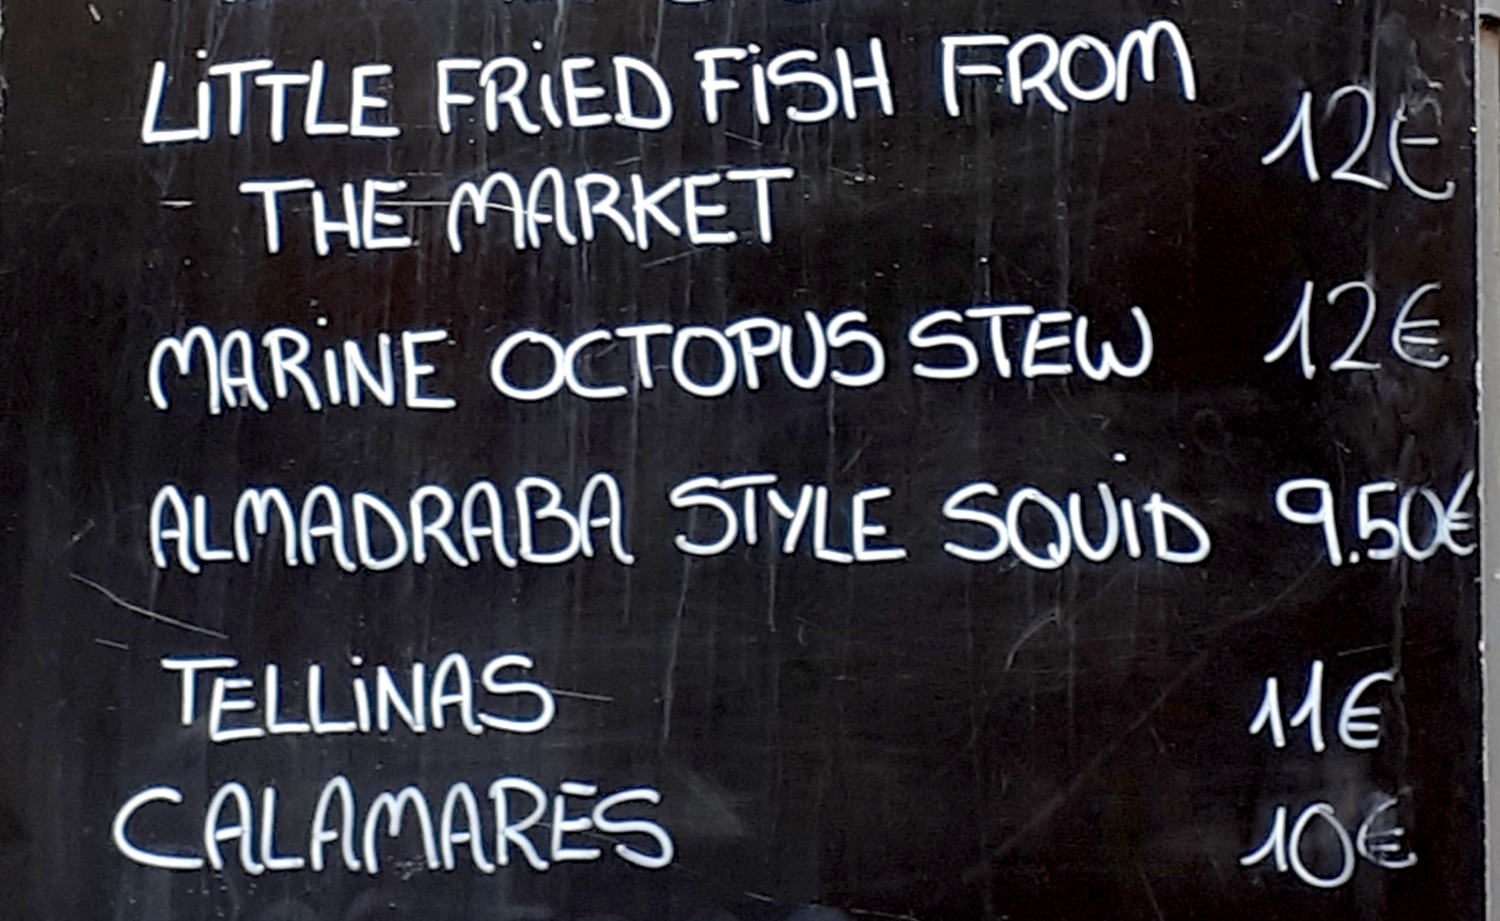 LiTTLE FRiED FiSH FROM 12€
THE MARKET
MARiNE OCTOPUS STEW 12€
ALMADRABA STYLE SQUiD 9.50€
TELLiNAS 11€
CALAMARES 10€